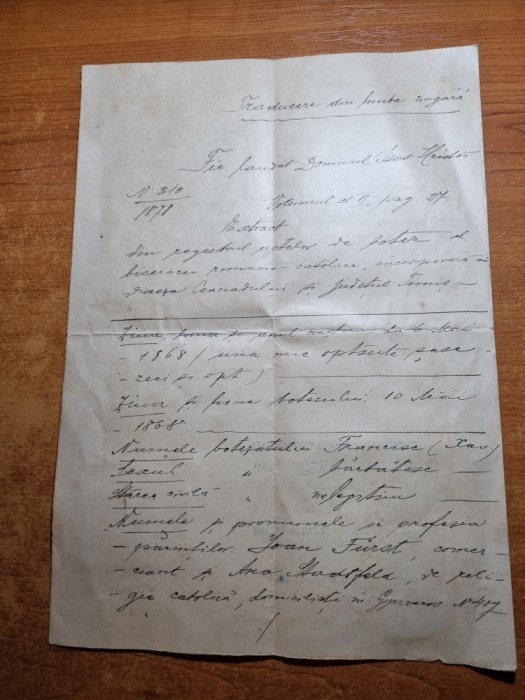 Traducere din limba ungară
Fie laudat Domnul Isus Hristos
N. 310
1878
Volumul XII, pag. 27.
Extract
din registrul actelor de botez al
bisericii romano-catolice, incorporată in
Județul Timiș
Ziua, luna și anul nașterii
- 1868 (una mie optsute șase
- zeci și opt)
Ziua și luna botezului: 10 Mai
- 1868
Numele botezatului Francisc (Xav)
Sexul " bărbătesc
Starea civilă " nelegitim
Numele și pronumele și profesia
- părinților. Ioan Fürst, comer-
- ciant și Ana Stadtfeld, de reli-
- gie catolică, domiciliați in N 407